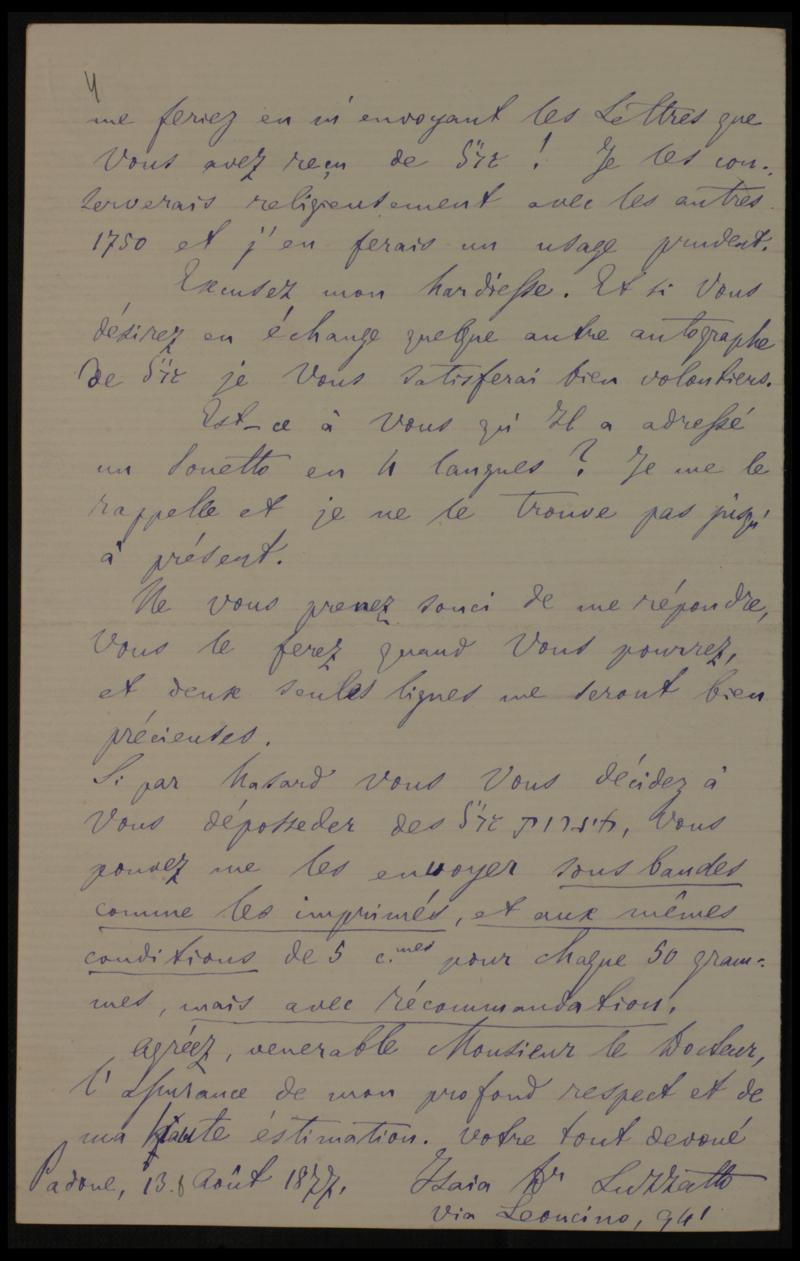 4
me feriez en m'envoyant les Léttres que
Vous avez reçu de שד״ל ! Je les con-
serverais religieusement avec les autres
1750 et j'en ferais un usage prudent.
Excusez mon hardiesse. Et si Vous
désirez en échange quelque autre autographe
de שד״ל je Vous satisferai bien volontiers.
Est-ce à Vous qu'Il a adressé
un Sonetto en 4 langues ? Je me le
rappelle et je ne le trouve pas jusqu'
à présent.
Ne vous prenez souci de me répondre,
Vous le ferez quand Vous pourrez,
et deux seules lignes me seront bien
précieuses.
Si par hasard vous Vous décidez à
Vous déposseder des שד״ל אגרות, Vous
pouvez me les envoyer sous bandes
comme les imprimés, et aux mêmes
conditions de 5 c.mes pour chaque 50 gram-
mes, mais avec récommandation.
Agréez, venerable Monsieur le Docteur,
l'assurance de mon profond respect et de
ma haute éstimation. Votre tout devoué
Padoue, 13.8 Août 1877. Isaia Dr Luzzatto
Via Leoncino, 941